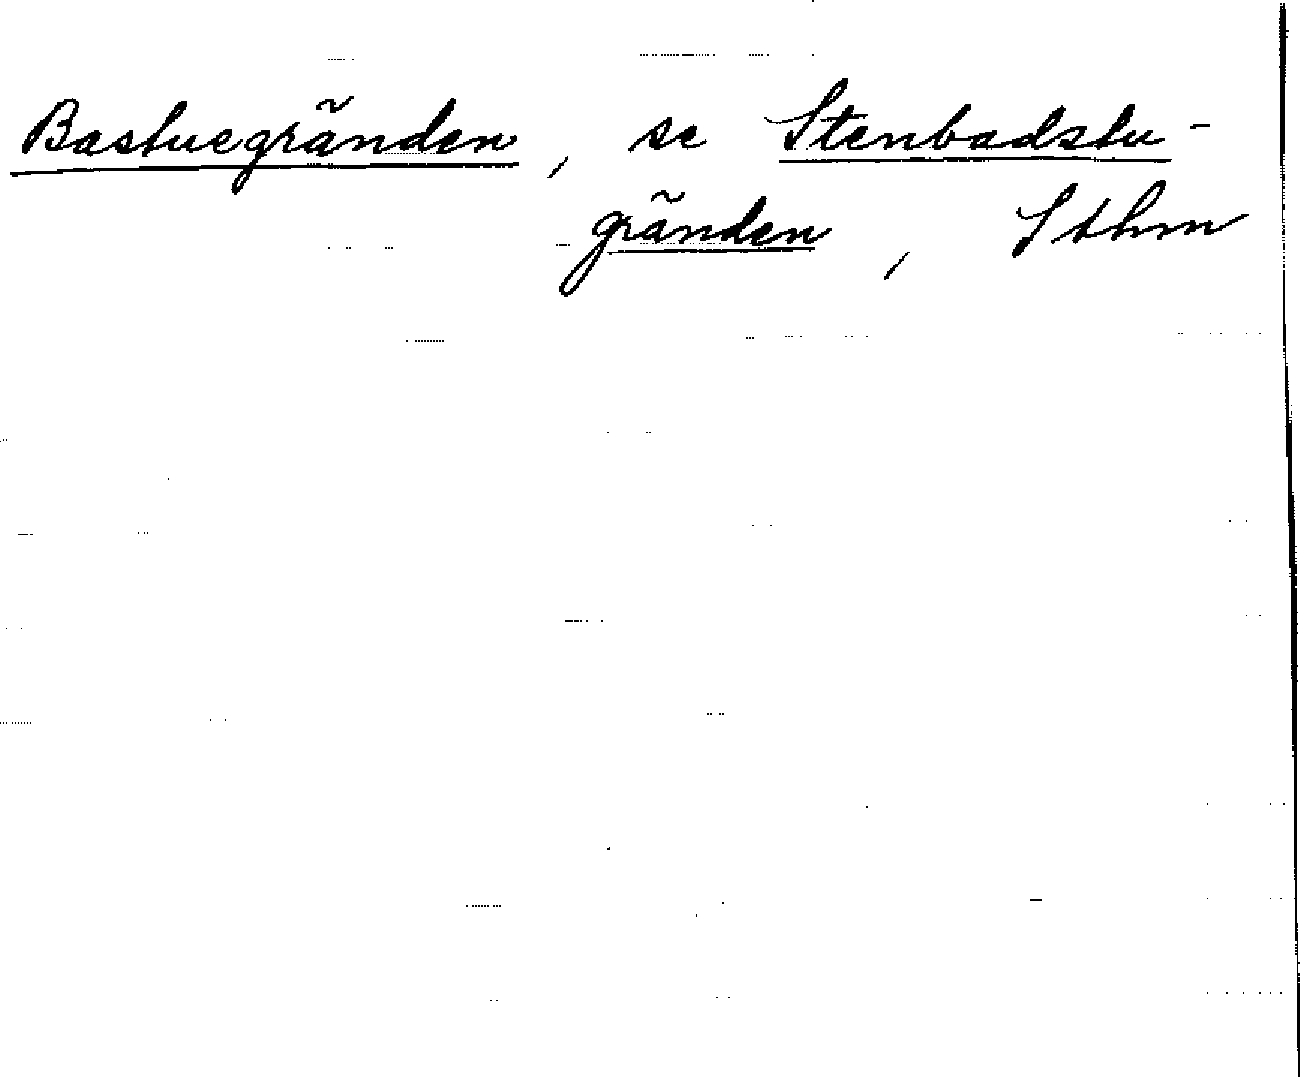 Bastuegränden, se Stenbadstu-
gränden, Sthm